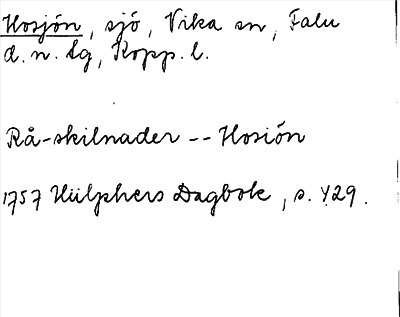 Hosjön, sjö, Vika sn, Falu
d. n. tg, Kopp. l.
Rå-skilnader -- Hosiön
1757 Hülphers Dagbok, s. 429.